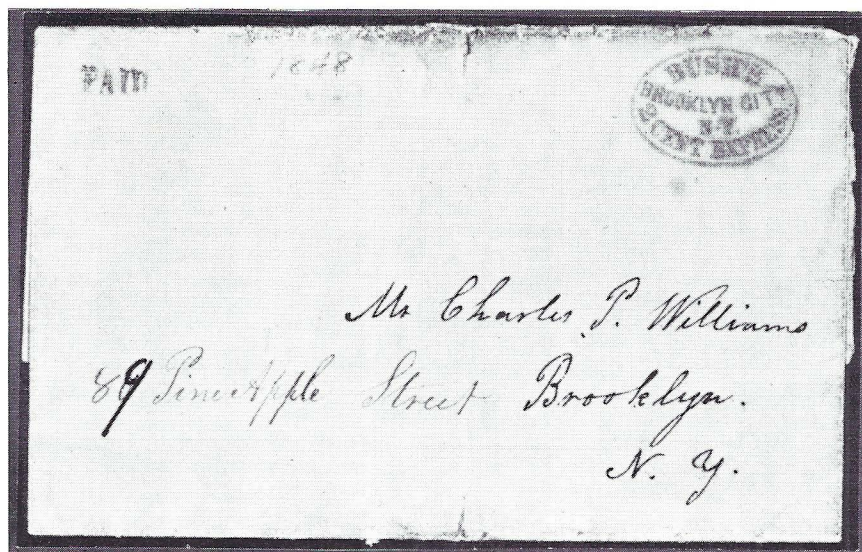 PAID
1848
BUSH'S
BROOKLYN CITY
N.Y.
2 CENT EXPRESS
Mr Charles P. Williams
89 PineApple Street Brooklyn.
N. Y.